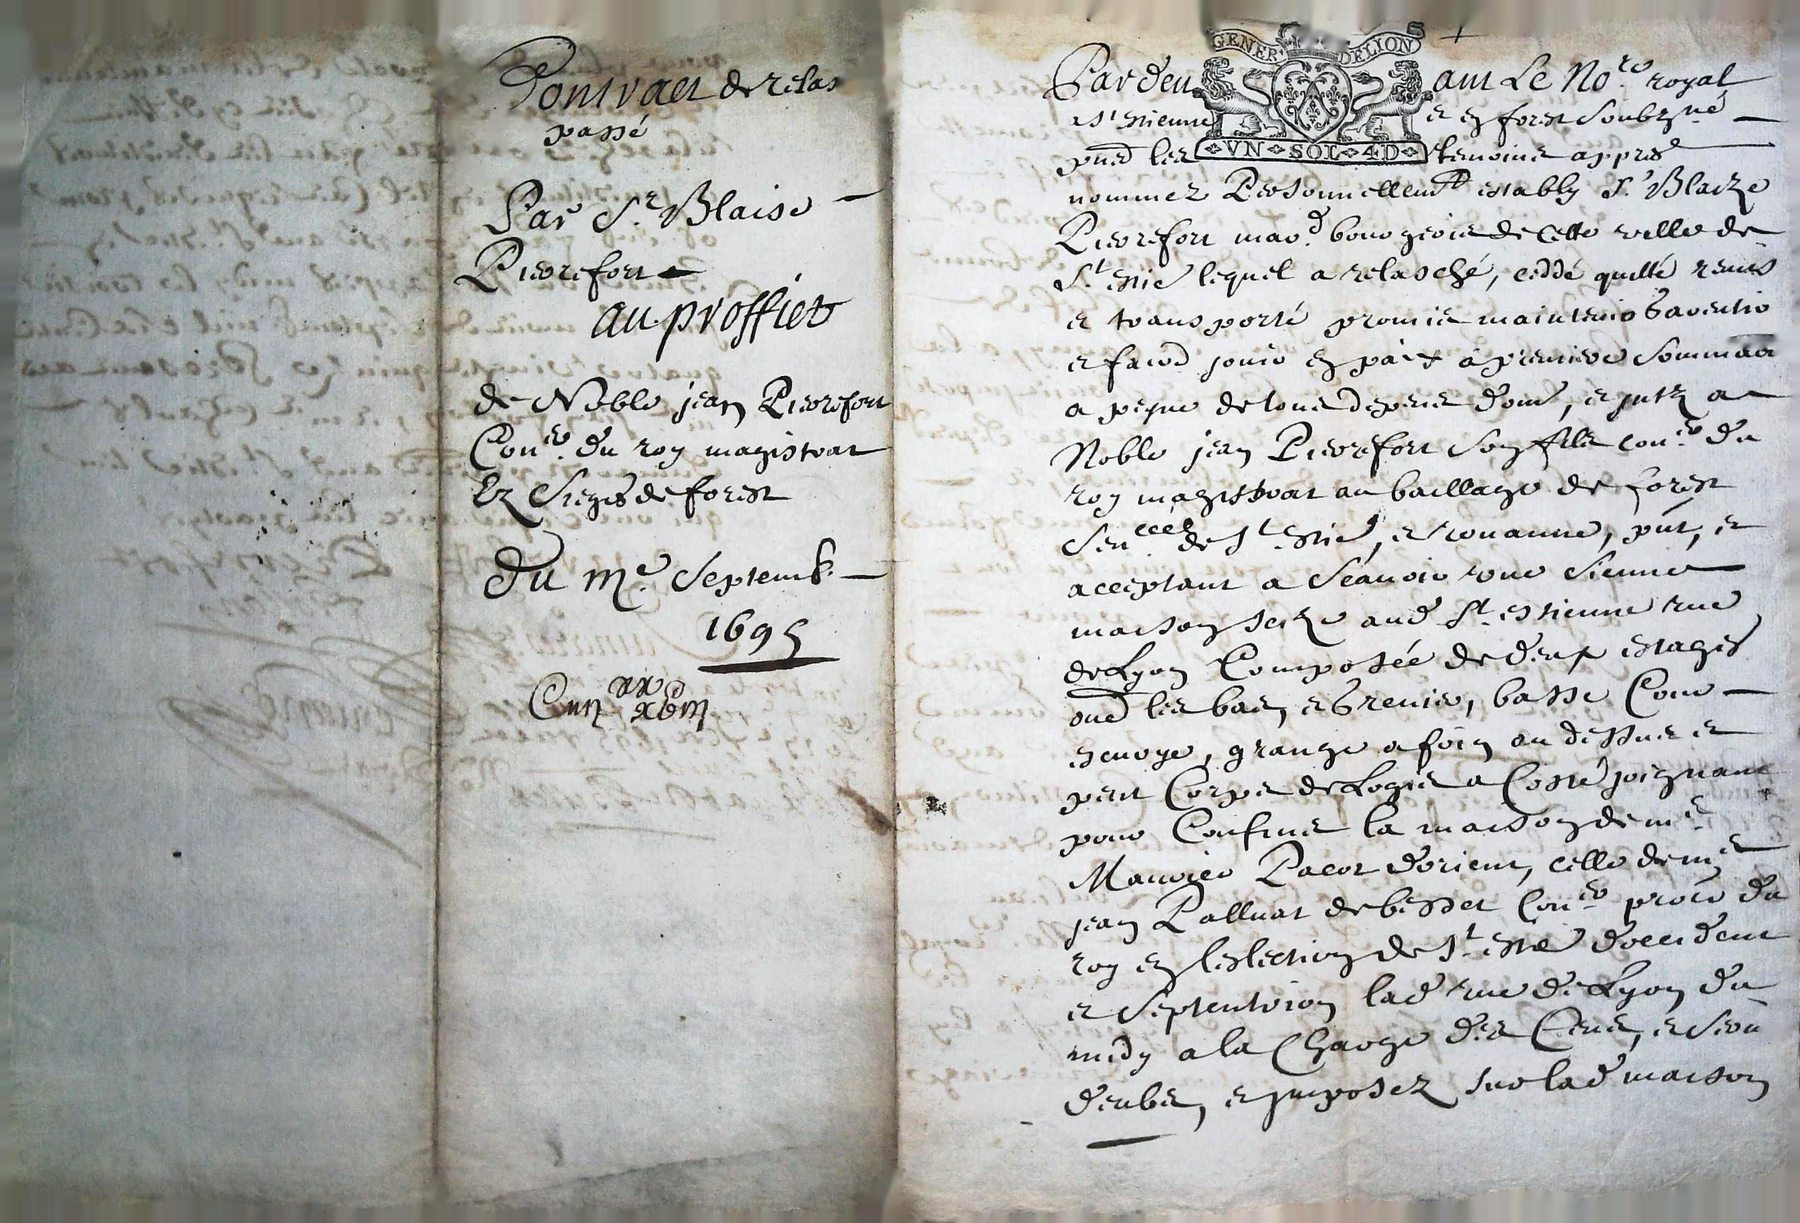 Contract de relas
passé
Par Sr. Blaise
Pierrefort
au proffict
de Noble jean Pierrefort
Coner. du roy magistrat
Ez Sieges de forest
du Me. Septemb.
1695
GENER. DELION
VN SOL 4D
Pardeuant Le Nore. royal
St estienne en forest Soubzné
pnt les temoins appres
nommez Personnellemt estably Sr. Blaize
Pierrefort mard. bourgeois de cette ville de
St. estie lequel a relasché, ceddé quitté remis
et transporté promis maintenir Garentir
et faire jouir en paix a premiere Sommaon
a peyne de tous depens dom, et intz a
Noble jean Pierrefort Son fils coner. du
roy magistrat au baillage de forest
Sencee de St. estie, et rouanne, pnt, et
acceptant a Scauoir une Sienne
maison size aud St. estienne rue
de Lyon Composée de deux estages
oued les bas, et Grenier, basse Cour
escuoye, grange a foin au dessus et
petit Corps de Logis a Costé joignant
pour Confins la maison de me
Mauvice Pacot d'orient, celle de me
jean Palluat de besset Coner procr du
roy en leslection de St. estie d'occident
et Septentrion lad rue de Lyon du
midy a la Charge des Cens, et Serui
deubs, et imposez sur lad maison